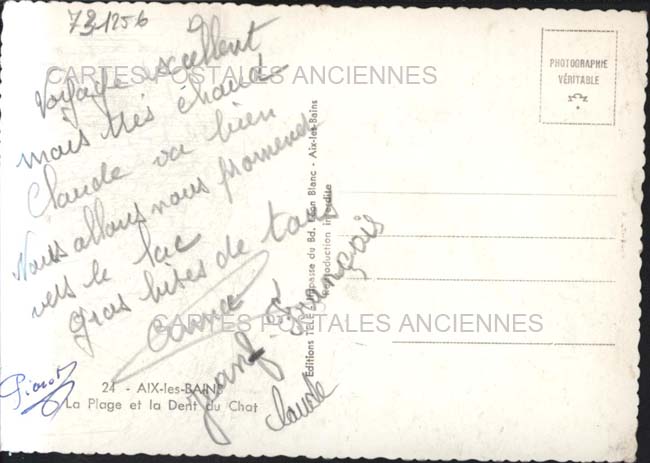 73-1256
Voyage excellent
mais très chaud
Claude va bien
Nous allons nous promener
vers le lac
Gros bises de tous
François
Claude
Pierrot
21 - AIX-les-BAINS
La Plage et la Dent du Chat
Editions du Bd. Léon Blanc - Aix-les-Bains
Reproduction interdite
PHOTOGRAPHIE
VÉRITABLE
CARTES POSTALES ANCIENNES
CARTES POSTALES ANCIENNES